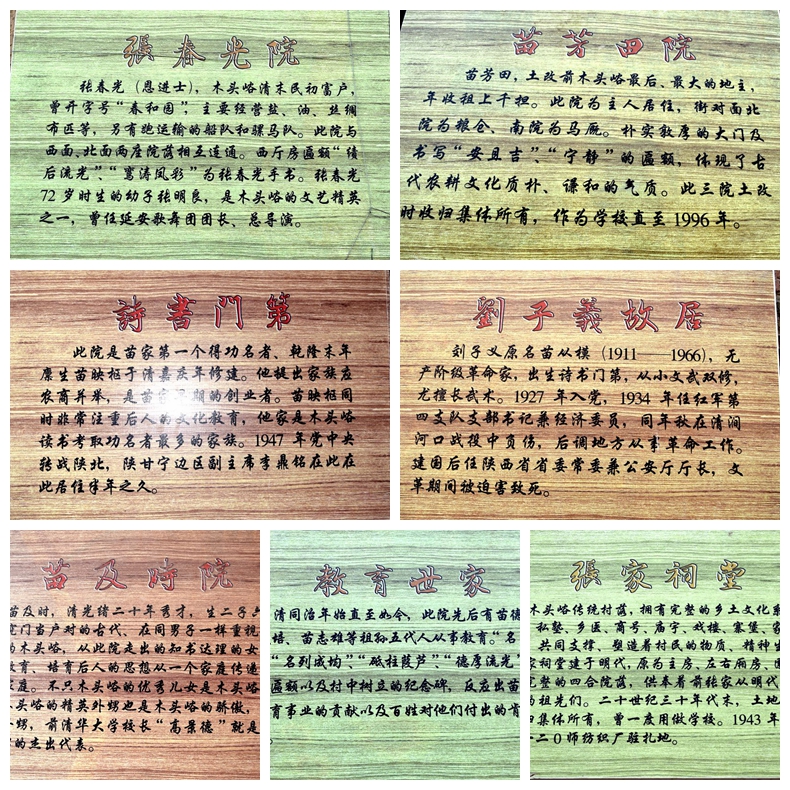 張春光院
张春光（恩进士），木头峪清末民初富户，
曾开字号“春和园”，主要经营盐、油、丝绸
布匹等，另有跑运输的船队和骡马队。此院与
西面、北面两座院落相互连通。西厅房匾额“绩
后流光”“鸾涛凤彩”为张春光手书。张春光
72岁时生的幼子张明良，是木头峪的文艺精英
之一，曾任延安歌舞团团长、总导演。
苗芳田院
苗芳田，土改前木头峪最后、最大的地主，
年收租上千担。此院为主人居住，街对面北
院为粮仓、南院为马厩。朴实敦厚的大门及
书写“安且吉”、“宁静”的匾额，体现了古
代农耕文化质朴、谦和的气质。此三院土改
时收归集体所有，作为学校直至1996年。
詩書門第
此院是苗家第一个得功名者、乾隆末年
廪生苗映枢于清嘉庆年修建。他提出家族应
农商并举，是苗家早期的创业者。苗映枢同
时非常注重后人的文化教育，他家是木头峪
读书考取功名者最多的家族。1947年党中央
转战陕北，陕甘宁边区副主席李鼎铭在此在
此居住半年之久。
劉子義故居
刘子义原名苗从模（1911——1966），无
产阶级革命家，出生诗书门第，从小文武双修，
尤擅长武术。1927年入党，1934年任红军第
四支队支部书记兼经济委员，同年秋在清涧
河口战役中负伤，后调地方从事革命工作。
建国后任陕西省省委常委兼公安厅厅长，文
革期间被迫害致死。
苗及時院
苗及时，清光绪二十年秀才，生二子六
门当户对的古代、在同男子一样重视
木头峪，从此院走出的知书达理的女
教育、培育后人的思想从一个家庭传递
庭。不只木头峪的优秀儿女是木头峪
头峪的精英外甥也是木头峪的骄傲，
甥，前清华大学校长“高景德”就是
的走出代表。
教育世家
清同治年始直至如今，此院先后有苗德
培、苗志雄等祖孙五代人从事教育。“名
“名列成均”、“砥柱葭芦”、“德厚流光”
匾额以及村中树立的纪念碑，反应出苗
育事业的贡献以及百姓对他们付出的肯
。
張家祠堂
木头峪传统村落，拥有完整的乡土文化系
私塾、乡医、商号、庙宇、戏楼、寨堡、家
共同支撑、塑造着村民的物质、精神生
家祠堂建于明代，原为主房、左右厢房、
完整的四合院落，供奉着前张家从明代
祖先们。二十世纪三十年代末，土地
集体所有，曾一度用做学校。1943年
二0师纺织厂驻扎地。